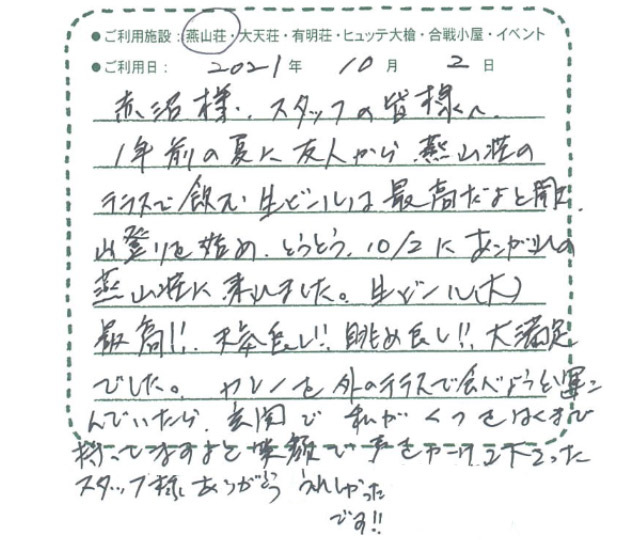 ●ご利用施設：燕山荘・大天荘・有明荘・ヒュッテ大槍・合戦小屋・イベント
●ご利用日： 2021年 10月 2日
赤沼様、スタッフの皆様へ
1年前の夏に友人から、燕山荘の
テラスで飲む生ビールは最高だよと聞き、
山登りを始め、とうとう、10/2にあこがれの
燕山荘に来れました。生ビール(大)
最高!!、天気良し!!、眺め良し!!、大満足
でした。カレーを外のテラスで食べようと運こ
んでいたら、玄関で私がくつをはくまで
持ってますよと笑顔で声をかけて下さった
スタッフ様、ありがとう うれしかった
です!!